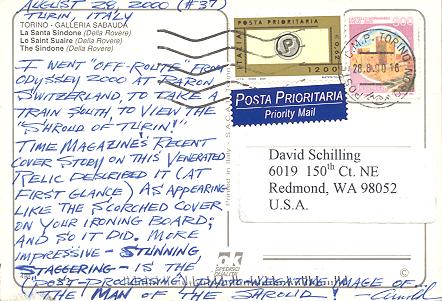 AUGUST 28, 2000 (#37)
TURIN, ITALY
TORINO - GALLERIA SABAUDA
La Santa Sindone (Della Rovere)
Le Saint Suaire (Della Rovere)
The Sindone (Della Rovere)
I WENT "OFF-ROUTE" FROM
ODYSSEY 2000 AT RARON,
SWITZERLAND, TO TAKE A
TRAIN SOUTH, TO VIEW THE
"SHROUD OF TURIN!"
TIME MAGAZINE'S RECENT
COVER STORY ON THIS VENERATED
RELIC DESCRIBED IT (AT
FIRST GLANCE) AS APPEARING
LIKE THE SCORCHED COVER
ON YOUR IRONING BOARD;
AND SO IT DID. MORE
IMPRESSIVE - STUNNING,
STAGGERING - IS THE
(POST-PROCESSING) PHOTO-NEGATIVE IMAGE OF
"THE MAN OF THE SHROUD"!
POSTA PRIORITARIA
ITALIA
P
1200
M.P. TORINO
28.8.00 16
POSTA PRIORITARIA
Priority Mail
David Schilling
6019 150th Ct. NE
Redmond, WA 98052
U.S.A.
Printed in Italy - S.A.C.
SPEDISCI
QUALITÀ
©